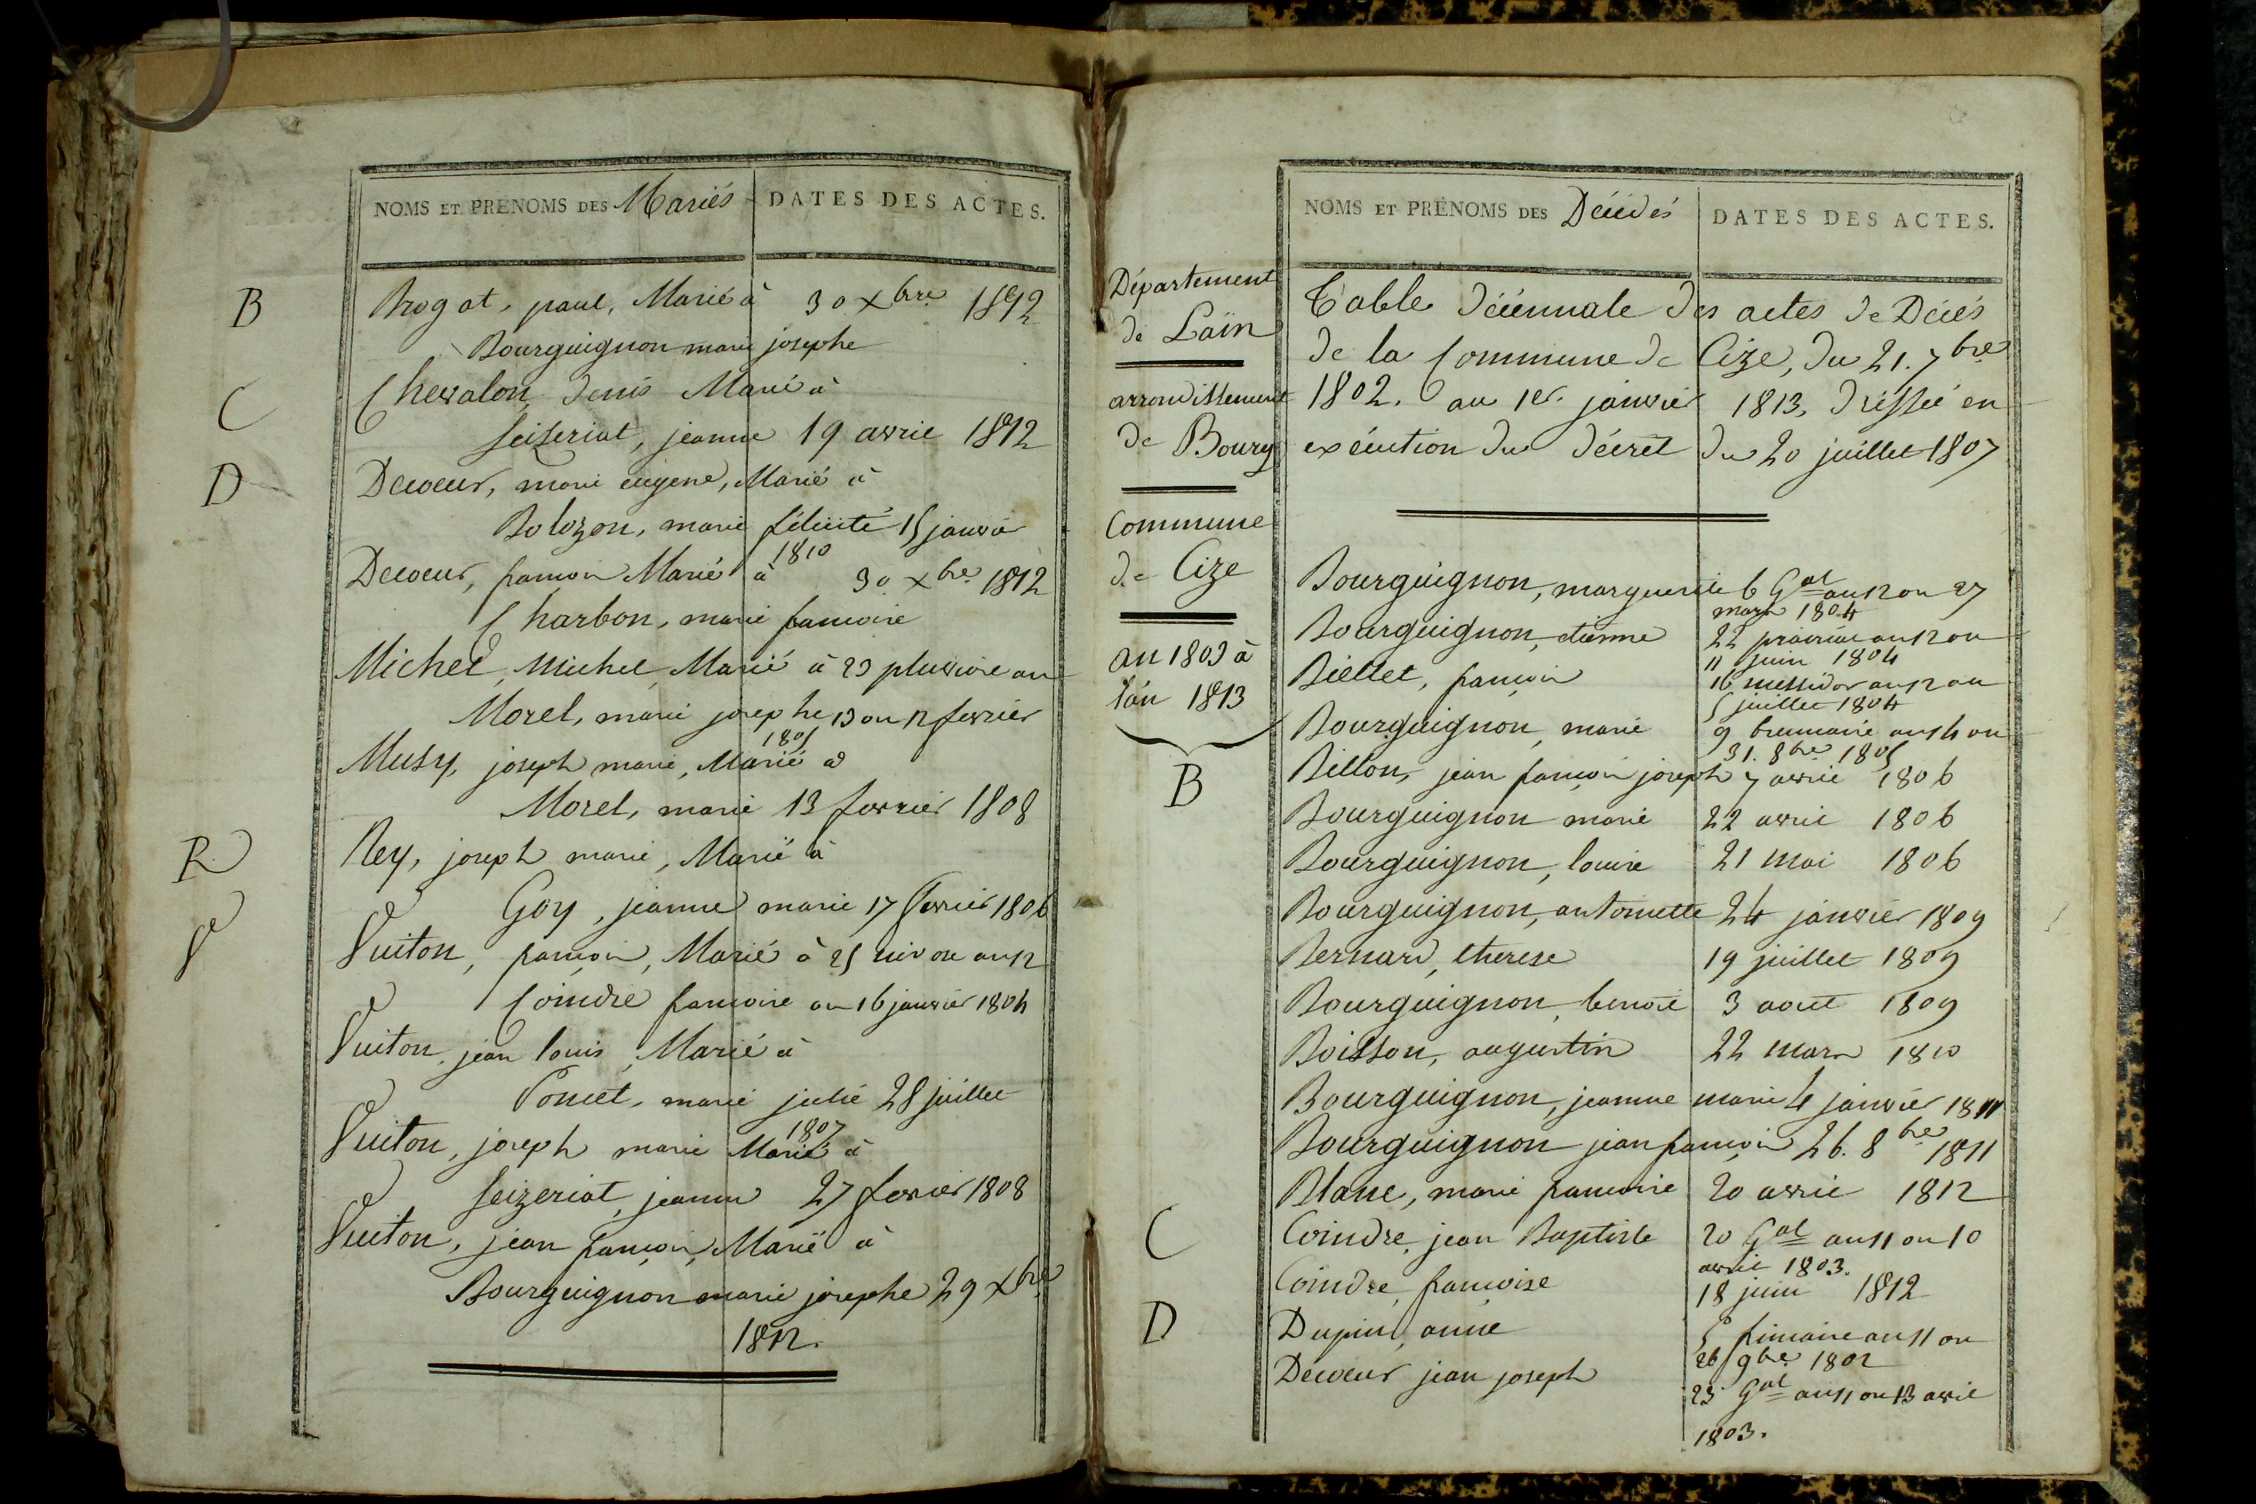 NOMS ET PRENOMS DES Mariés DATES DES ACTES.
B
Brogat, paul, Marié à 30 xbre 1812
Bourguignon marie josephe
C
Chevalon, denis Marié à
Seizeriat, jeanne 19 avril 1812
D
Decoeur, marie eugene, Marié à
Bolozon, marie félicité 15 janvier
1810
Decoeur, françois Marié à 30 xbre 1812
Charbon, marie françoise
Michel, Michel, Marié à 23 pluviose an
Morel, marie josephe 13 ou 12 fevrier
1805
Musy, joseph marie, Marié à
Morel, marie 13 fevrier 1808
R
Rey, joseph marie, Marié à
Goy, jeanne marie 17 fevrier 1806
V
Vuiton, françois, Marié à 25 nivose an 12
Coindre françoise ou 16 janvier 1804
Vuiton, jean louis, Marié à
Poncet, marie julie 28 juillet
1807
Vuiton, joseph marie Marié à
Seizeriat, jeanne 27 fevrier 1808
Vuiton, jean françois, Marié à
Bourguignon marie josephe 29 xbre
1812.
NOMS ET PRÉNOMS DES Décédés DATES DES ACTES.
Département
de Laïn
arrondissement
de Bourg
Commune
de Cize
an 1803 à
l'an 1813
Table décennale des actes de Décès
de la Commune de Cize, du 21. 7bre
1802. au 1er. janvier 1813, dressée en
exécution du décret du 20 juillet 1807
B
Bourguignon, marguerite 6 Gal an 12 ou 27
mars 1804
Bourguignon, etienne 22 prairial an 12 ou
11 juin 1804
Biellet, françois 16 messidor an 12 ou
5 juillet 1804
Bourguignon, marie 9 brumaire an 14 ou
31. 8bre 1805
Billon, jean françois joseph 7 avril 1806
Bourguignon marie 22 avril 1806
Bourguignon, louise 21 mai 1806
Bourguignon, antoinette 24 janvier 1809
Bernard, therese 19 juillet 1809
Bourguignon, benoit 3 aout 1809
Boisson, augustin 22 mars 1810
Bourguignon, jeanne marie 4 janvier 1811
Bourguignon jean françois 26. 8bre 1811
Blanc, marie françoise 20 avril 1812
C
Coindre, jean Baptiste 20 Gal an 11 ou 10
avril 1803.
Coindre, françoise 18 juin 1812
D
Dupin, anne 5 frimaire an 11 ou
26 9bre 1802
Decoeur jean joseph 23 Gal an 11 ou 13 avril
1803.